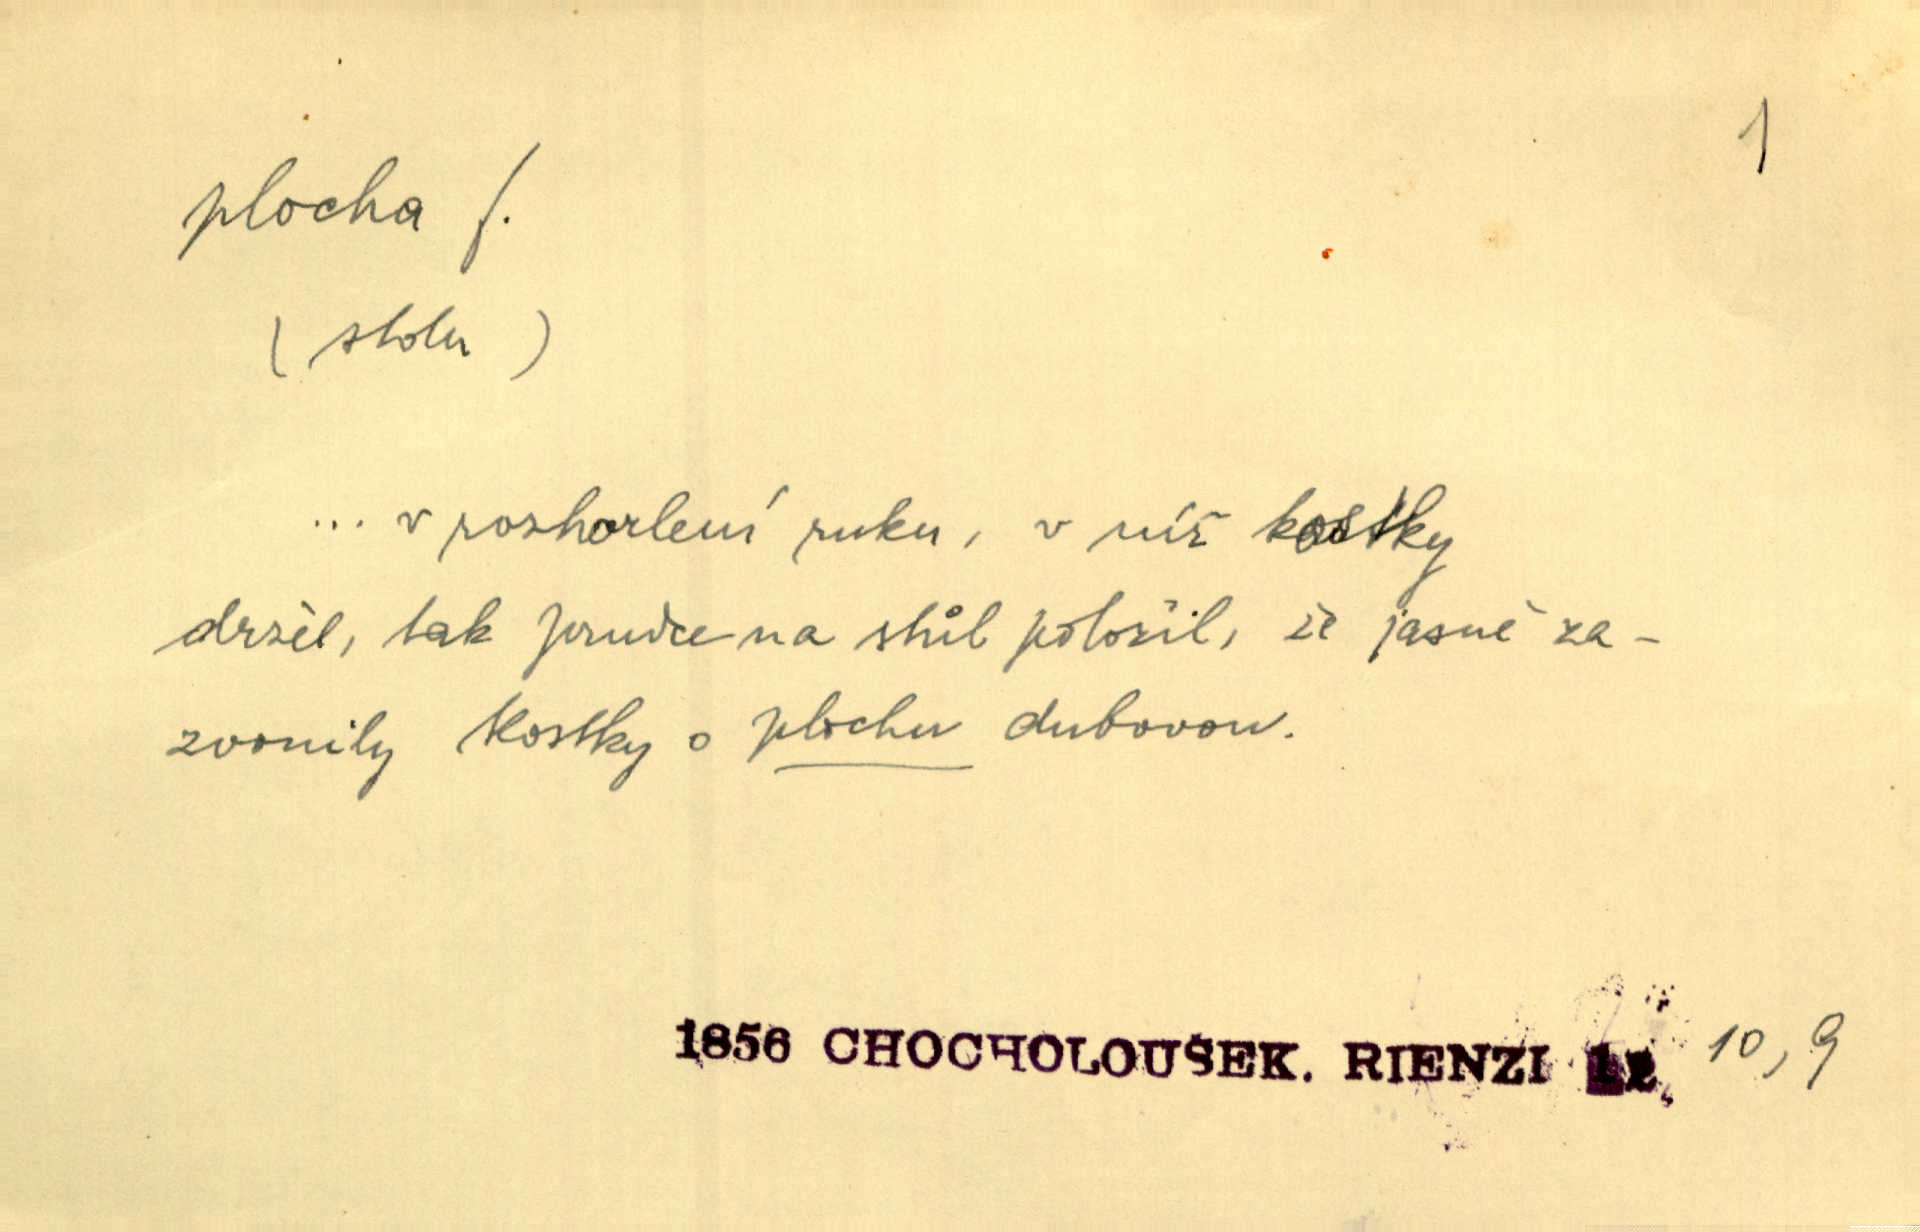 1
plocha f.
( stolu )
... v rozhorlení ruku, v níž kostky
držel, tak prudce na stůl položil, že jasně za-
zvonily kostky o plochu dubovou.
1856 CHOCHOLOUŠEK. RIENZI 10, 9